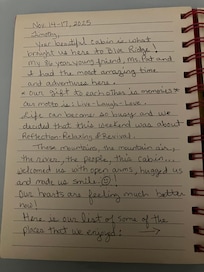 Nov 14-17, 2025
Timothy,
Your beautiful Cabin is what
brought us here to Blue Ridge!
My 86 year young friend, Ms. Pat and
I had the most amazing time
and adventures here.
* Our gift to each other is memories *
Our motto is: Live-Laugh-Love.
Life can become so busy and we
decided that this weekend was about
Reflection Relaxing & Revival.
These mountains, the mountain air,
the river, the people, this Cabin...
welcomed us with open arms, hugged us
and made us smile ☺!
Our hearts are feeling much better
now!
Here is our list of some of the
places that we enjoyed: →